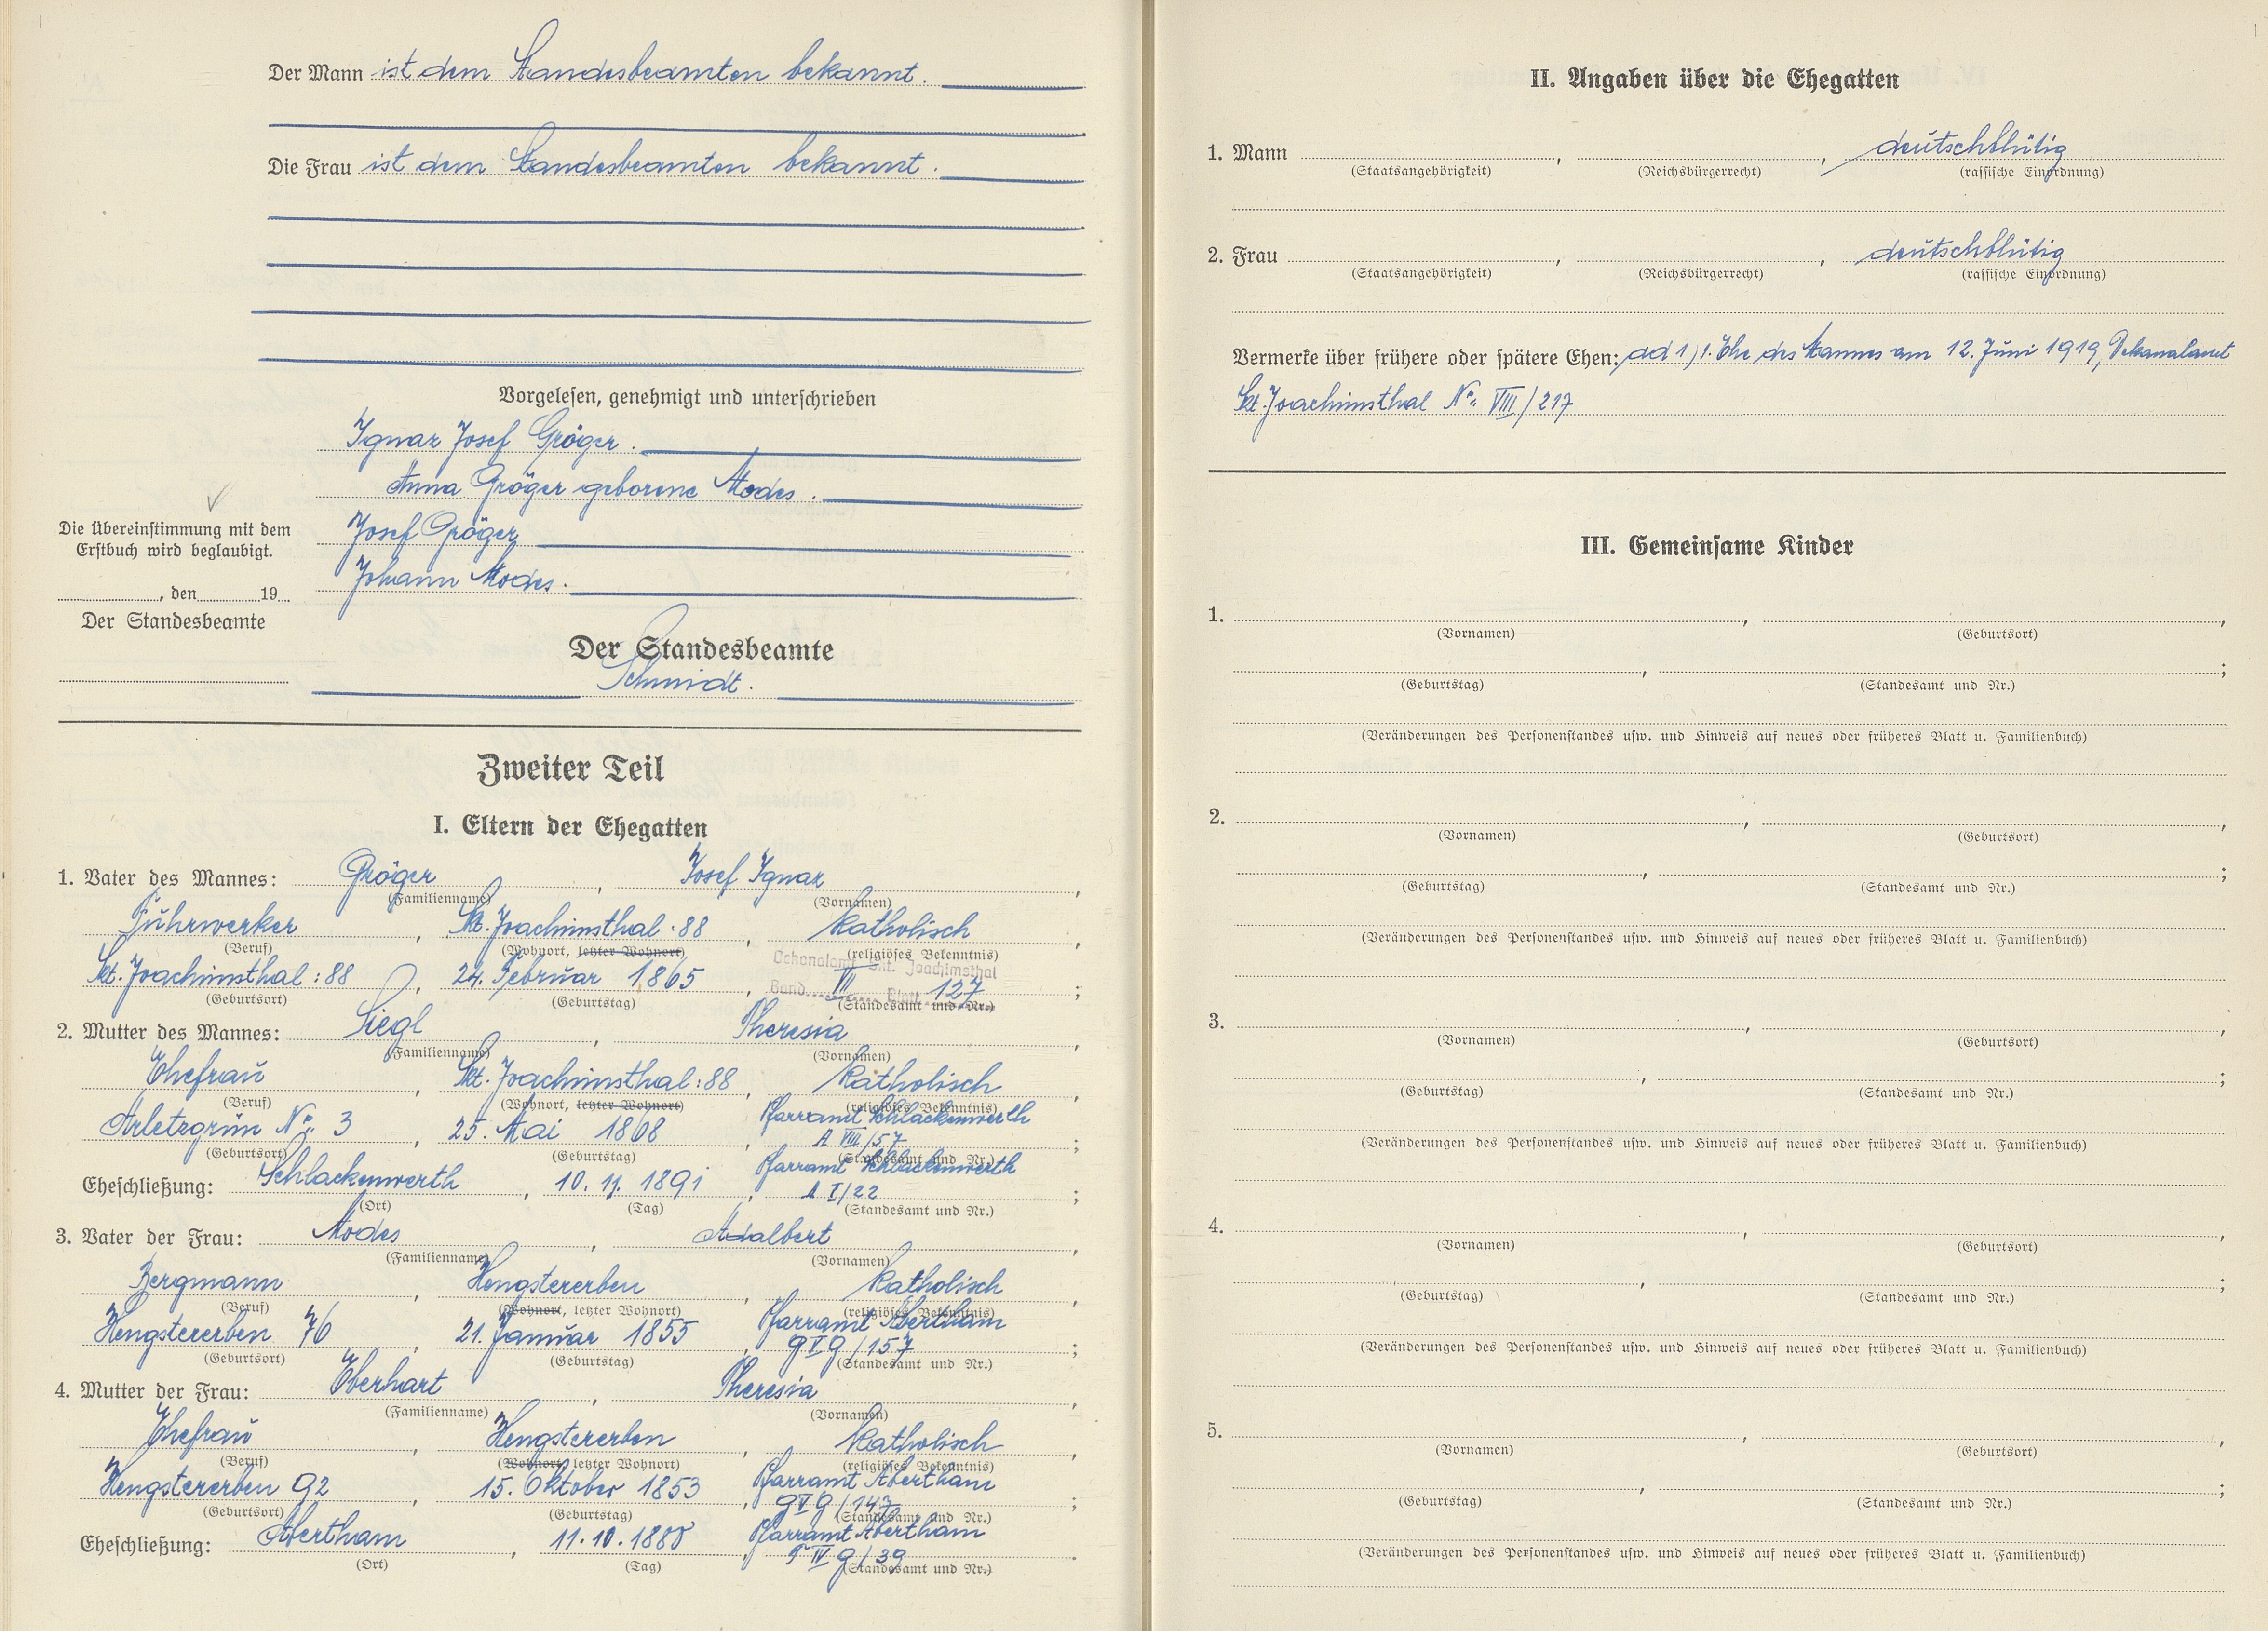 Der Mann ist dem Standesbeamten bekannt.
Die Frau ist dem Standesbeamten bekannt.
Vorgelesen, genehmigt und unterschrieben
Ignaz Josef Gröger.
Anna Gröger geborene Modes.
Josef Gröger
Johann Modes.
Die Übereinstimmung mit dem
Erstbuch wird beglaubigt.
, den 19
Der Standesbeamte
Der Standesbeamte
Schmidt.
Zweiter Teil
I. Eltern der Ehegatten
1. Vater des Mannes: Gröger, Josef Ignaz,
(Familienname) (Vornamen)
Fuhrwerker, Skt. Joachimsthal : 88, katholisch,
(Beruf) (Wohnort, letzter Wohnort) (religiöses Bekenntnis)
Dekanalamt Skt. Joachimsthal
Skt. Joachimsthal : 88, 24. Februar 1865, Band VII Blatt 127;
(Geburtsort) (Geburtstag) (Standesamt und Nr.)
2. Mutter des Mannes: Siegl, Theresia,
(Familienname) (Vornamen)
Ehefrau, Skt. Joachimsthal : 88, katholisch,
(Beruf) (Wohnort, letzter Wohnort) (religiöses Bekenntnis)
Pfarramt Schlackenwerth
Arletzgrün No. 3, 25. Mai 1868, A VIII/57;
(Geburtsort) (Geburtstag) (Standesamt und Nr.)
Pfarramt Schlackenwerth
Eheschließung: Schlackenwerth, 10. 11. 1891, A I/22;
(Ort) (Tag) (Standesamt und Nr.)
3. Vater der Frau: Modes, Adalbert,
(Familienname) (Vornamen)
Bergmann, Hengstererben, katholisch,
(Beruf) (Wohnort, letzter Wohnort) (religiöses Bekenntnis)
Pfarramt Abertham
Hengstererben 76, 21. Januar 1855, 157;
(Geburtsort) (Geburtstag) (Standesamt und Nr.)
4. Mutter der Frau: Eberhart, Theresia,
(Familienname) (Vornamen)
Ehefrau, Hengstererben, katholisch,
(Beruf) (Wohnort, letzter Wohnort) (religiöses Bekenntnis)
Pfarramt Abertham
Hengstererben 92, 15. Oktober 1853, 147;
(Geburtsort) (Geburtstag) (Standesamt und Nr.)
Pfarramt Abertham
Eheschließung: Abertham, 11. 10. 1880, 39.
(Ort) (Tag) (Standesamt und Nr.)
II. Angaben über die Ehegatten
1. Mann , , deutschblütig
(Staatsangehörigkeit) (Reichsbürgerrecht) (rassische Einordnung)
2. Frau , , deutschblütig
(Staatsangehörigkeit) (Reichsbürgerrecht) (rassische Einordnung)
Vermerke über frühere oder spätere Ehen: ad 1) 1. Ehe des Mannes am 12. Juni 1919, Dekanalamt
Skt. Joachimsthal No. VIII/217
III. Gemeinsame Kinder
1. , ,
(Vornamen) (Geburtsort)
, ;
(Geburtstag) (Standesamt und Nr.)
(Veränderungen des Personenstandes usw. und Hinweis auf neues oder früheres Blatt u. Familienbuch)
2. , ,
(Vornamen) (Geburtsort)
, ;
(Geburtstag) (Standesamt und Nr.)
(Veränderungen des Personenstandes usw. und Hinweis auf neues oder früheres Blatt u. Familienbuch)
3. , ,
(Vornamen) (Geburtsort)
, ;
(Geburtstag) (Standesamt und Nr.)
(Veränderungen des Personenstandes usw. und Hinweis auf neues oder früheres Blatt u. Familienbuch)
4. , ,
(Vornamen) (Geburtsort)
, ;
(Geburtstag) (Standesamt und Nr.)
(Veränderungen des Personenstandes usw. und Hinweis auf neues oder früheres Blatt u. Familienbuch)
5. , ,
(Vornamen) (Geburtsort)
, ;
(Geburtstag) (Standesamt und Nr.)
(Veränderungen des Personenstandes usw. und Hinweis auf neues oder früheres Blatt u. Familienbuch)